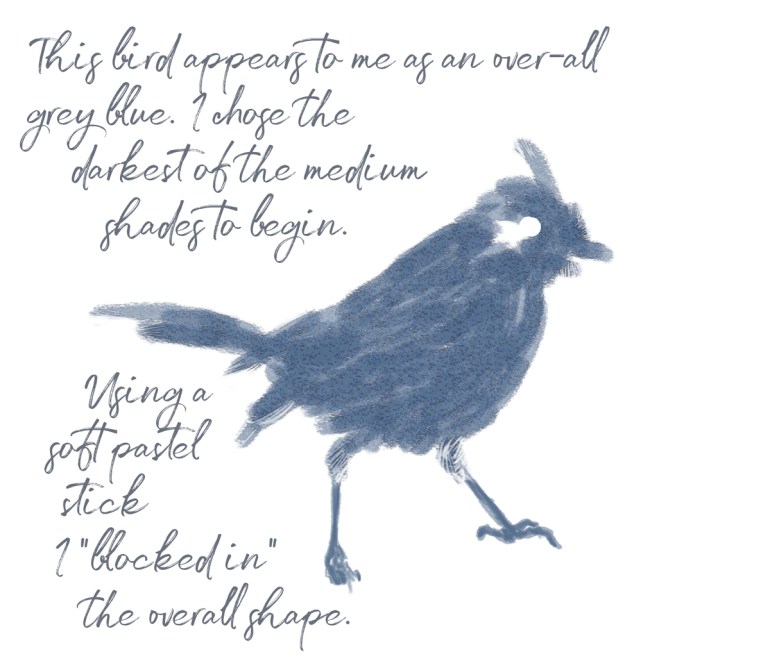 This bird appears to me as an over-all
grey blue. I chose the
darkest of the medium
shades to begin.
Using a
soft pastel
stick
I "blocked in"
the overall shape.